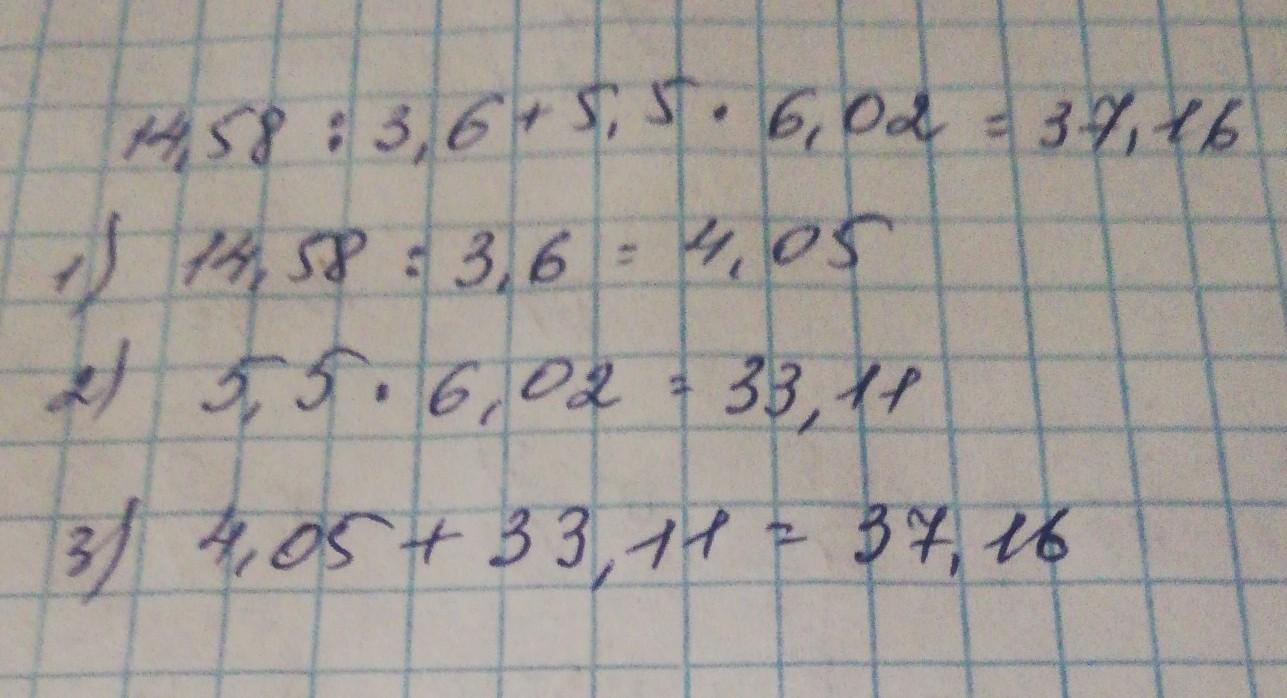 14,58 : 3,6 + 5,5 · 6,02 = 37,16
1) 14,58 : 3,6 = 4,05
2) 5,5 · 6,02 = 33,11
3) 4,05 + 33,11 = 37,16